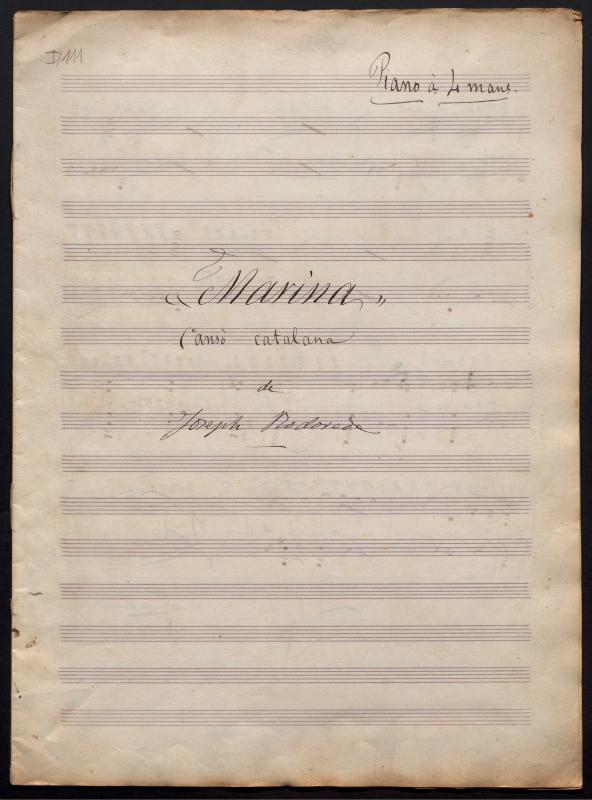 D/111
Piano à 4 mans.
"Marina"
Cansó catalana
de
Joseph Rodoreda